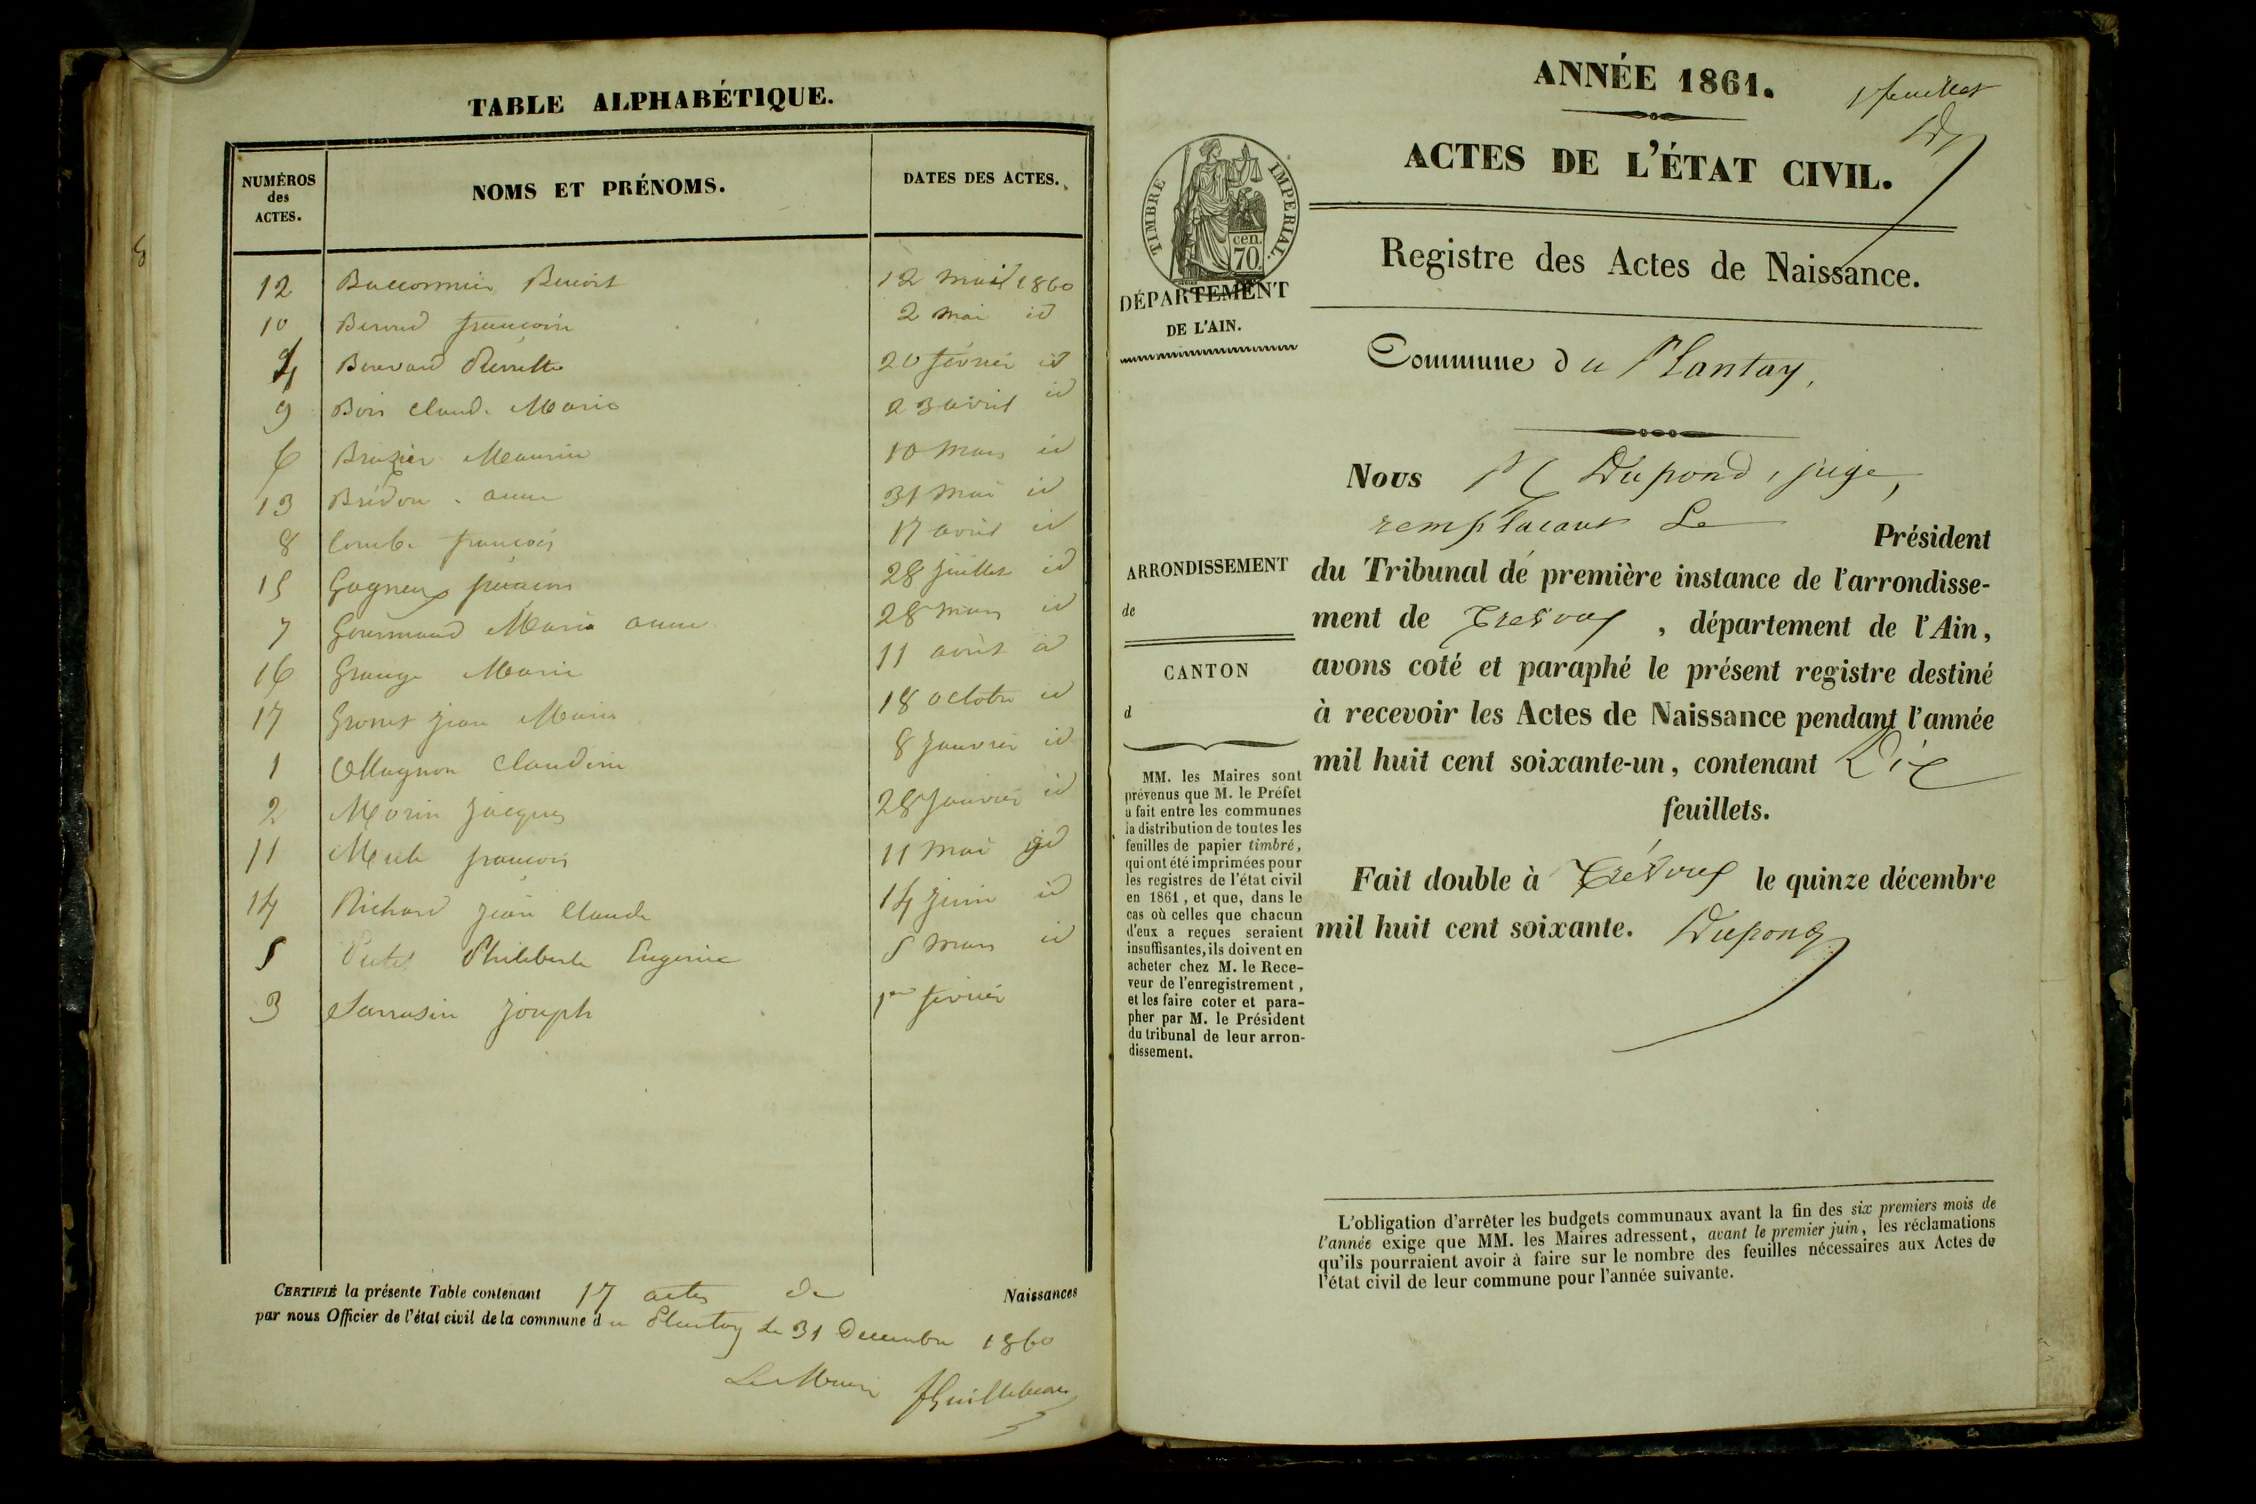 TABLE ALPHABÉTIQUE.
NUMÉROS
des
ACTES.
NOMS ET PRÉNOMS.
DATES DES ACTES.
12 Benoit 12 mai 1860
10 Beroud françois 2 mai id
4 Benevard Pierrette 20 février id
9 Bois Claude Marie 23 avril id
6 Brazier Maurice 10 mars id
13 Bridon anne 31 mai id
8 Combe françois 17 avril id
15 Gagneux françois 28 juillet id
7 Gourmand Marie anne 28 mars id
16 Grange Marie 11 id
17 Jean Marie 18 octobre id
1 Magnon Claudine 8 janvier id
2 Morin Jacques 28 janvier id
11 françois 11 mai id
14 Richard Jean Claude 14 juin id
5 Philiberte Eugenie 5 mars id
3 Sarrasin Joseph 1er février
CERTIFIÉ la présente Table contenant 17 actes de Naissances
par nous Officier de l'état civil de la commune du Plantay le 31 Decembre 1860
Le Maire
ANNÉE 1861.
1 feuillet
ACTES DE L'ÉTAT CIVIL.
TIMBRE IMPERIAL.
cen.
70
DÉPARTEMENT
DE L'AIN.
Registre des Actes de Naissance.
Commune du Plantay,
Nous M Dupond, juge,
remplacant Le Président
ARRONDISSEMENT
de
CANTON
d
MM. les Maires sont
prévenus que M. le Préfet
a fait entre les communes
la distribution de toutes les
feuilles de papier timbré,
qui ont été imprimées pour
les registres de l'état civil
en 1861, et que, dans le
cas où celles que chacun
d'eux a reçues seraient
insuffisantes, ils doivent en
acheter chez M. le Rece-
veur de l'enregistrement,
et les faire coter et para-
pher par M. le Président
du tribunal de leur arron-
dissement.
du Tribunal de première instance de l'arrondisse-
ment de Trévoux, département de l'Ain,
avons coté et paraphé le présent registre destiné
à recevoir les Actes de Naissance pendant l'année
mil huit cent soixante-un, contenant Dix
feuillets.
Fait double à Trévoux le quinze décembre
mil huit cent soixante. Dupond
L'obligation d'arrêter les budgets communaux avant la fin des six premiers mois de
l'année exige que MM. les Maires adressent, avant le premier juin, les réclamations
qu'ils pourraient avoir à faire sur le nombre des feuilles nécessaires aux Actes de
l'état civil de leur commune pour l'année suivante.